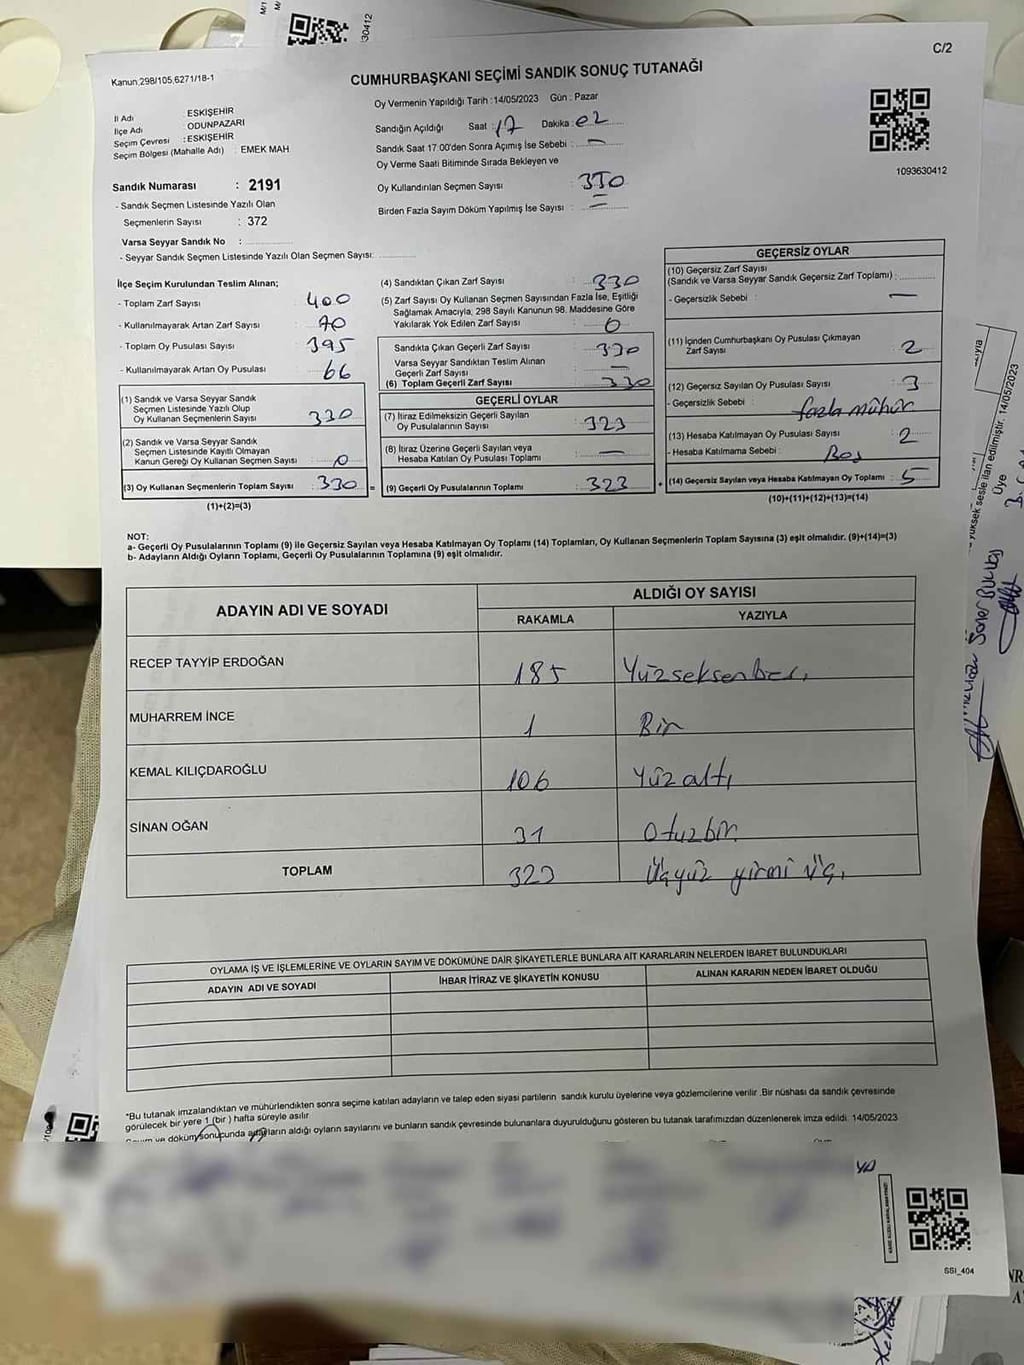 M/1
30412
C/2
Kanun,298/105,6271/18-1
CUMHURBAŞKANI SEÇİMİ SANDIK SONUÇ TUTANAĞI
Oy Vermenin Yapıldığı Tarih :14/05/2023 Gün : Pazar
İl Adı : ESKİŞEHİR
İlçe Adı ODUNPAZARI
Seçim Çevresi : ESKİŞEHİR
Seçim Bölgesi (Mahalle Adı) : EMEK MAH.
Sandığın Açıldığı Saat : 17 Dakika : 02
Sandık Saat 17.00'den Sonra Açımış İse Sebebi : —
Oy Verme Saati Bitiminde Sırada Bekleyen ve
Oy Kullandırılan Seçmen Sayısı : 330
Birden Fazla Sayım Döküm Yapılmış İse Sayısı :
1093630412
Sandık Numarası : 2191
- Sandık Seçmen Listesinde Yazılı Olan
Seçmenlerin Sayısı : 372
Varsa Seyyar Sandık No :
- Seyyar Sandık Seçmen Listesinde Yazılı Olan Seçmen Sayısı:
İlçe Seçim Kurulundan Teslim Alınan;
- Toplam Zarf Sayısı : 400
- Kullanılmayarak Artan Zarf Sayısı : 70
- Toplam Oy Pusulası Sayısı : 395
- Kullanılmayarak Artan Oy Pusulası : 66
(1) Sandık ve Varsa Seyyar Sandık
Seçmen Listesinde Yazılı Olup
Oy Kullanan Seçmenlerin Sayısı : 330
(2) Sandık ve Varsa Seyyar Sandık
Seçmen Listesinde Kayıtlı Olmayan
Kanun Gereği Oy Kullanan Seçmen Sayısı : 0
(3) Oy Kullanan Seçmenlerin Toplam Sayısı : 330 =
(1)+(2)=(3)
(4) Sandıktan Çıkan Zarf Sayısı : 330
(5) Zarf Sayısı Oy Kullanan Seçmen Sayısından Fazla İse, Eşitliği
Sağlamak Amacıyla, 298 Sayılı Kanunun 98. Maddesine Göre
Yakılarak Yok Edilen Zarf Sayısı : 0
Sandıkta Çıkan Geçerli Zarf Sayısı : 330
Varsa Seyyar Sandıktan Teslim Alınan
Geçerli Zarf Sayısı : —
(6) Toplam Geçerli Zarf Sayısı : 330
GEÇERLİ OYLAR
(7) İtiraz Edilmeksizin Geçerli Sayılan
Oy Pusulalarının Sayısı : 323
(8) İtiraz Üzerine Geçerli Sayılan veya
Hesaba Katılan Oy Pusulası Toplamı : —
(9) Geçerli Oy Pusulalarının Toplamı : 323 +
GEÇERSİZ OYLAR
(10) Geçersiz Zarf Sayısı
(Sandık ve Varsa Seyyar Sandık Geçersiz Zarf Toplamı) :
- Geçersizlik Sebebi : —
(11) İçinden Cumhurbaşkanı Oy Pusulası Çıkmayan
Zarf Sayısı : 2
(12) Geçersiz Sayılan Oy Pusulası Sayısı : 3
- Geçersizlik Sebebi : fazla mühür
(13) Hesaba Katılmayan Oy Pusulası Sayısı : 2
- Hesaba Katılmama Sebebi : Boş
(14) Geçersiz Sayılan veya Hesaba Katılmayan Oy Toplamı : 5
(10)+(11)+(12)+(13)=(14)
NOT:
a- Geçerli Oy Pusulalarının Toplamı (9) ile Geçersiz Sayılan veya Hesaba Katılmayan Oy Toplamı (14) Toplamları, Oy Kullanan Seçmenlerin Toplam Sayısına (3) eşit olmalıdır. (9)+(14)=(3)
b- Adayların Aldığı Oyların Toplamı, Geçerli Oy Pusulalarının Toplamına (9) eşit olmalıdır.
ADAYIN ADI VE SOYADI ALDIĞI OY SAYISI
RAKAMLA YAZIYLA
RECEP TAYYİP ERDOĞAN 185 Yüzseksenbeş
MUHARREM İNCE 1 Bir
KEMAL KILIÇDAROĞLU 106 Yüzaltı
SİNAN OĞAN 31 Otuzbir
TOPLAM 323 Üçyüz yirmi üç
OYLAMA İŞ VE İŞLEMLERİNE VE OYLARIN SAYIM VE DÖKÜMÜNE DAİR ŞİKAYETLERLE BUNLARA AİT KARARLARIN NELERDEN İBARET BULUNDUKLARI
ADAYIN ADI VE SOYADI İHBAR İTİRAZ VE ŞİKAYETİN KONUSU ALINAN KARARIN NEDEN İBARET OLDUĞU
*Bu tutanak imzalandıktan ve mühürlendikten sonra seçime katılan adayların ve talep eden siyasi partilerin sandık kurulu üyelerine veya gözlemcilerine verilir .Bir nüshası da sandık çevresinde
görülecek bir yere 1 (bir ) hafta süreyle asılır.
Sayım ve döküm sonucunda adayların aldığı oyların sayılarını ve bunların sandık çevresinde bulunanlara duyurulduğunu gösteren bu tutanak tarafımızdan düzenlenerek imza edildi. 14/05/2023
SSI_404
yüksek sesle ilan edilmiştir. 14/05/2023
Üye
Soner